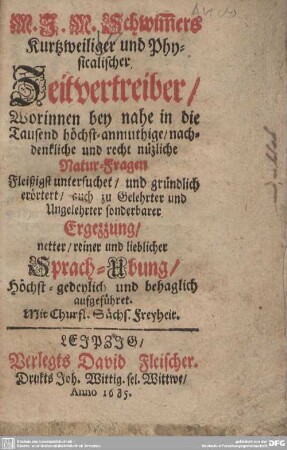 M. J. M. Schwim̄ers
Kurtzweiliger und Phy-
sicalischer
Zeitvertreiber/
Worinnen bey nahe in die
Tausend höchst-anmuthige/nach-
denkliche und recht nüzliche
Natur-Fragen
Fleißigst untersuchet/ und gründlich
erörtert/ auch zu Gelehrter und
Ungelehrter sonderbarer
Ergezzung/
netter/reiner und lieblicher
Sprach-Ubung/
Höchst-gedeylich und behaglich
aufgeführet.
Mit Churfl. Sächs. Freyheit.
LEIPZIG/
Verlegts David Fleischer.
Drukts Joh. Wittig. sel. Wittwe/
Anno 1685.
DFG